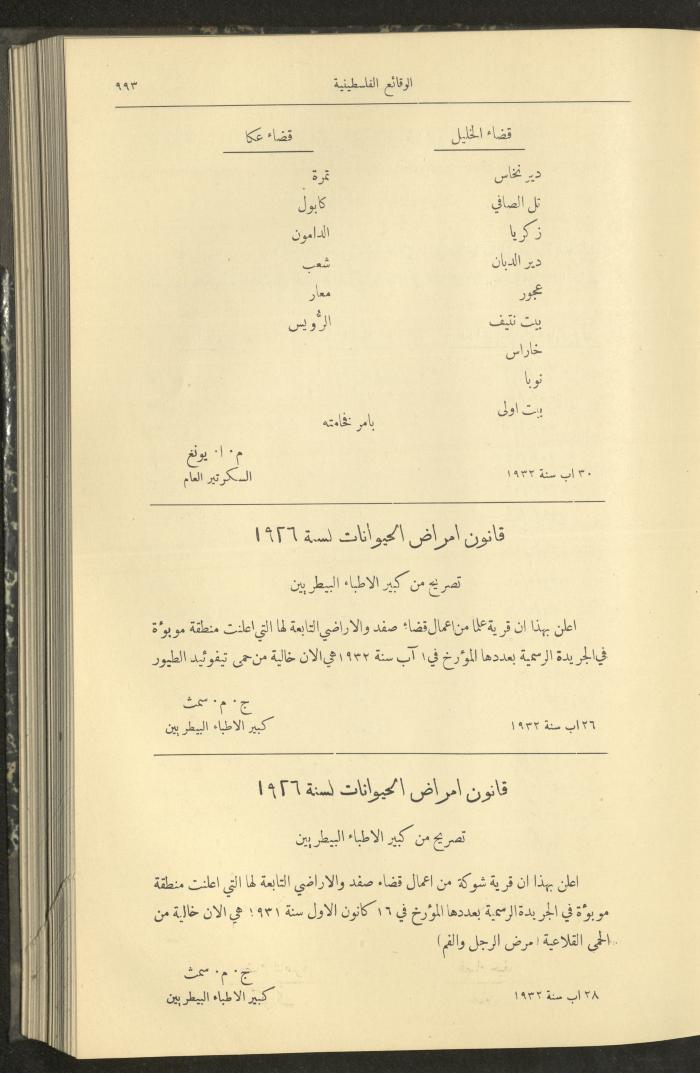 الوقائع الفلسطينية
٩٩٣
قضاء الخليل
دير نخاس
تل الصافي
زكريا
دير الدبان
عجور
بيت نتيف
خاراس
نوبا
بيت اولى
قضاء عكا
تمرة
كابول
الدامون
شعب
معار
الرُّويس
بامر فخامته
م٠ ا٠ يونغ
السكرتير العام
٣٠ اب سنة ١٩٣٢
قانون امراض الحيوانات لسنة ١٩٢٦
تصريح من كبير الاطباء البيطريين
اعلن بهذا ان قرية علما من اعمال قضاء صفد والاراضي التابعة لها التي اعلنت منطقة موبوٴة
في الجريدة الرسمية بعددها المؤرخ في ١ آب سنة ١٩٣٢ هي الان خالية من حمى تيفوئيد الطيور
ج٠ م٠ سمث
كبير الاطباء البيطريين
٢٦ اب سنة ١٩٣٢
قانون امراض الحيوانات لسنة ١٩٢٦
تصريح من كبير الاطباء البيطريين
اعلن بهذا ان قرية شوكة من اعمال قضاء صفد والاراضي التابعة لها التي اعلنت منطقة
موبوٴة في الجريدة الرسمية بعددها المؤرخ في ١٦ كانون الاول سنة ١٩٣١ هي الان خالية من
الحمى القلاعية (مرض الرجل والفم)
ج٠ م٠ سمث
كبير الاطباء البيطريين
٢٨ اب سنة ١٩٣٢